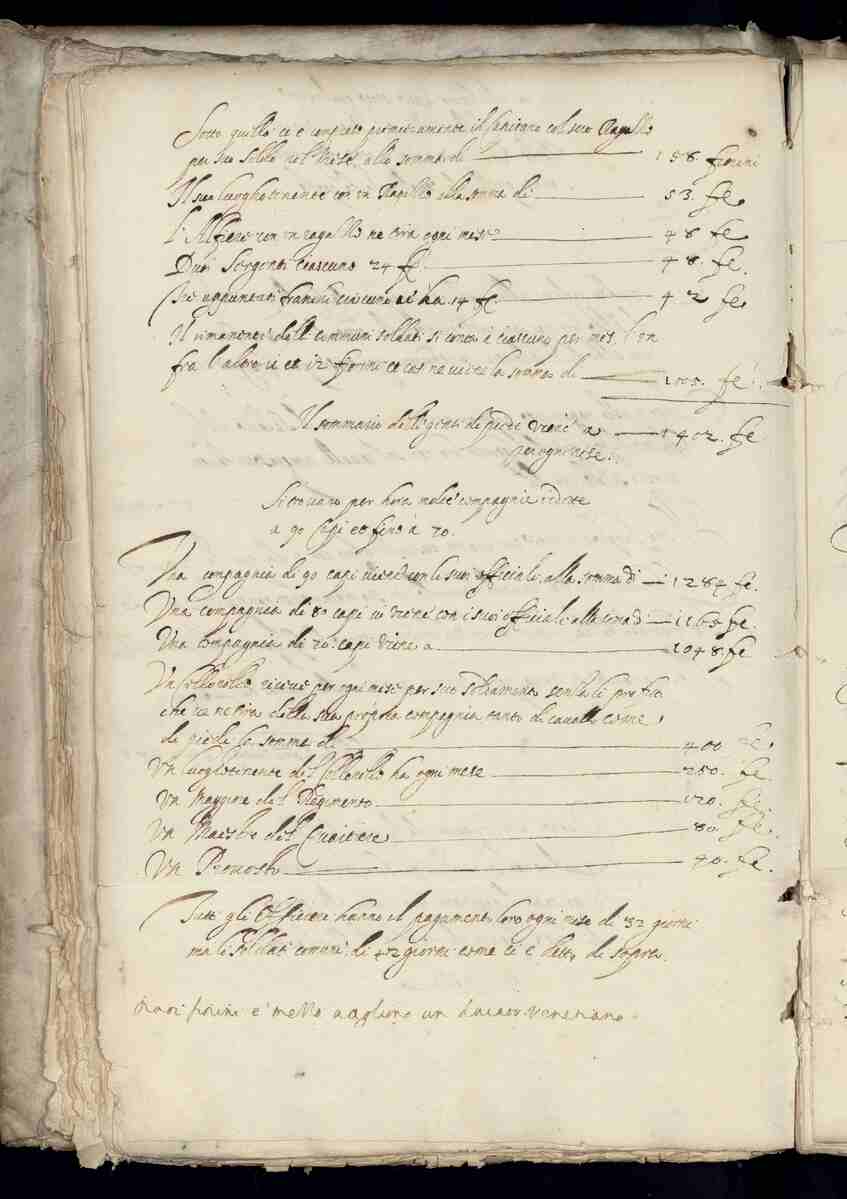 Sotto quello ce e compreso primieramente il Capitano col suo Ragallo
per suo soldo nel Mese alla somma di 158 fiorini
Il suo luoghotenente con un Ragallo alla somma di 53. fe.
L'Alfiere con un ragallo ne tira ogni mese 48 fe
Duoi Sergenti ciascuno 24 fe. 48. fe.
Tre appuntati ciascuno ne ha 14 fe. 42 fe
Il rimanente delli communi soldati si conta à ciascuno per mese l'un
fra l'altro 12 fiorini et cosi ne viene la somma di fe.
Il summario della gente di piede viene a 1402. fe
per ogni mese.
Si trovano per hora molte compagnie ridotte
a 90 Capi et fino à 70.
Una compagnia di 90 capi viene con li suoi officiali alla somma di 1284 fe.
Una compagnia di 80 capi viene con i suoi officiali alla soma di 1165 fe.
Una compagnia di 70. capi viene a 1048. fe
Un Collonello riceve per ogni mese per suo trattamento senza li
che ne tira della sua propria compagnia tanto di cavallo come
de piede la somma di 400 fe.
Un luoghotenente del Collonello ha ogni mese 250. fe.
Un Maggiore del Regimento 120. fe.
Un Maestro del Quartiere 80. fe.
Un Prevosto 40. fe.
Tutti gli Officiere hanno il pagamento loro ogni mese de 32 giorni
ma li soldati comuni di 42 giorni come ce e detto di sopra.
fiorini e' mezzo vagliono un ducato venetiano.